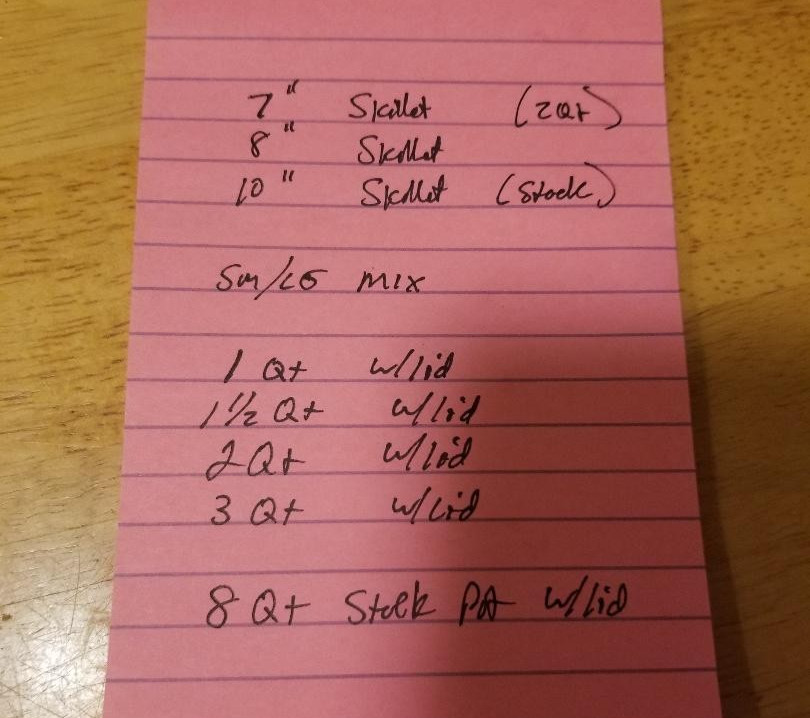 7" Skillet (2Qt)
8" Skillet
10" Skillet (Stock)
Sm/LG MIX
1 Qt w/lid
1 1/2 Qt w/lid
2 Qt w/lid
3 Qt w/lid
8 Qt Stock Pot w/lid